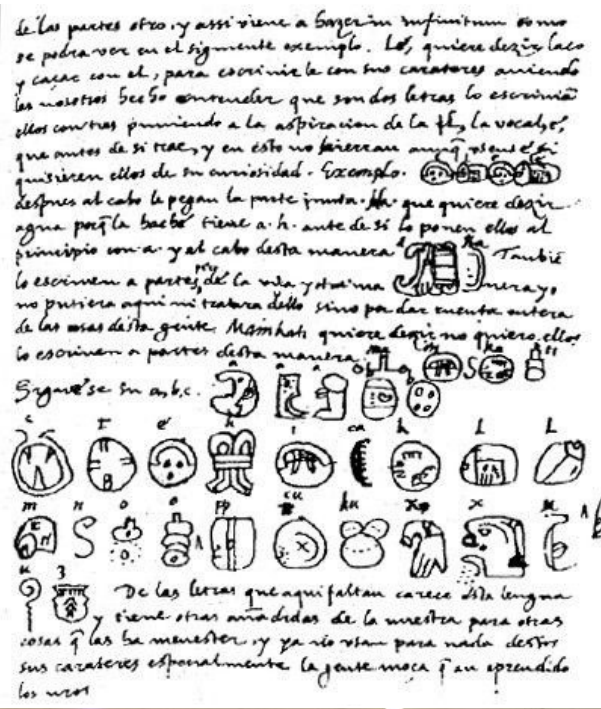 de las partes otro, y assi viene a hazer in infinitum como
se podra ver en el siguiente exemplo. Lé, quiere dezir laço
y caçar con el, para escrivirle con sus carateres aviendo
les nosotros hecho entender que son dos letras lo escrivian
ellos con tres puniendo a la aspiracion de la la vocal, é,
que antes de si trae, y en esto no hierran aunq̃ usense si
quisieren ellos de su curiosidad. Exemplo.
despues al cabo le pegan la parte junta. Ha que quiere dezir
agua porq̃ la hache tiene a. h. ante de si lo ponen ellos al
principio con a. y al cabo desta manera ha Tambiē
lo escriven a partes de la una y otra manera yo
no pusiera aqui ni tratara dello sino por dar cuenta entera
de las cosas desta gente. Mainkati quiere dezir no quiero ellos
lo escriven a partes desta manera ma i n ka ti
Siguese su a, b, c. a a a b b
c t é h i ca k l l
m n o o pp cu ku x x u
u z De las letras que aqui faltan carece esta lengua
y tiene otras añadidas de la nuestra para otras
cosas q̃ las ha menester, y ya no usan para nada destos
sus carateres especialmente la gente moça q̃ an aprendido
los nros